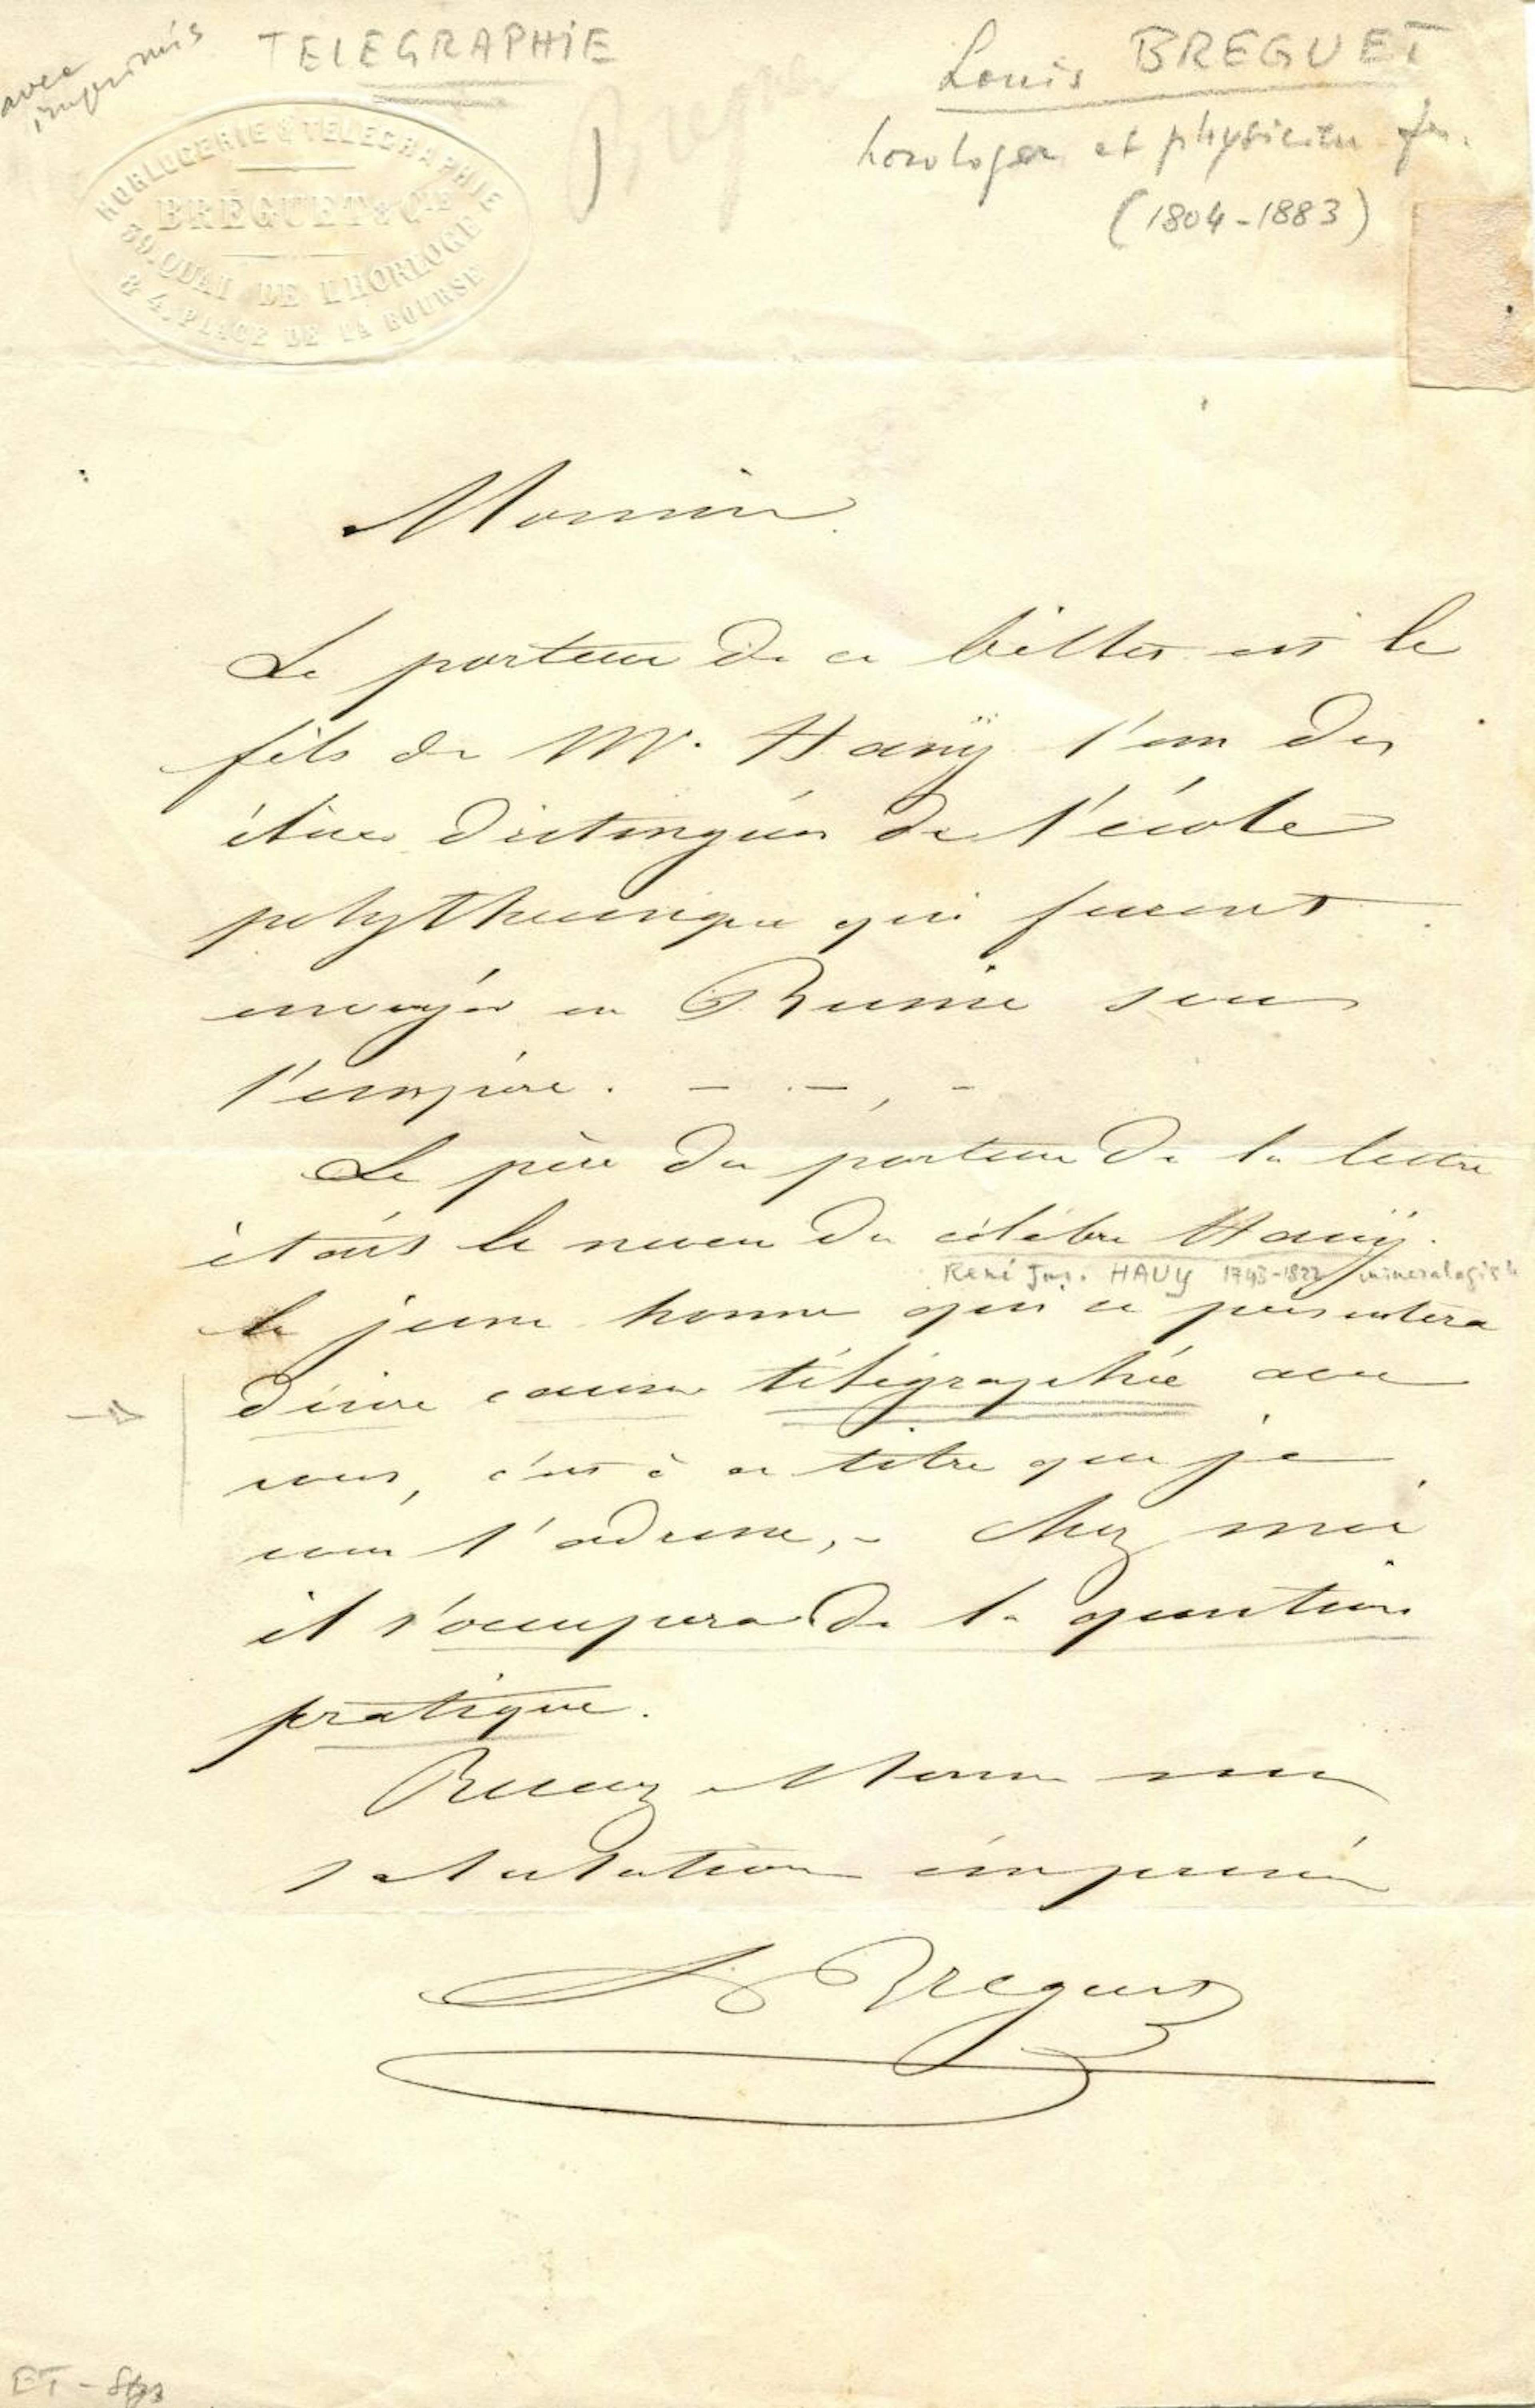 avec
imprimés
TELEGRAPHIE
Louis BREGUET
horloger et physicien fr.
(1804-1883)
HORLOGERIE & TELEGRAPHIE
BREGUET & CIE
39, QUAI DE L'HORLOGE
& 4, PLACE DE LA BOURSE
Monsieur
Le porteur de ce billet est le
fils de Mr. Haüy l'un des
élèves distingués de l'école
polythecnique qui furent
envoyés en Russie sous
l'empire.
Le père du porteur de la lettre
était le neveu du célèbre Haüy.
René Jus. HAUY 1743-1822 minéralogiste
le jeune homme qui se présentera
désire causer télégraphie avec
vous, c'est à ce titre que je
vous l'adresse, - Chez moi
il s'occupera de la question
pratique.
Recevez Monsieur mes
salutations empressées
L Breguet
ET -